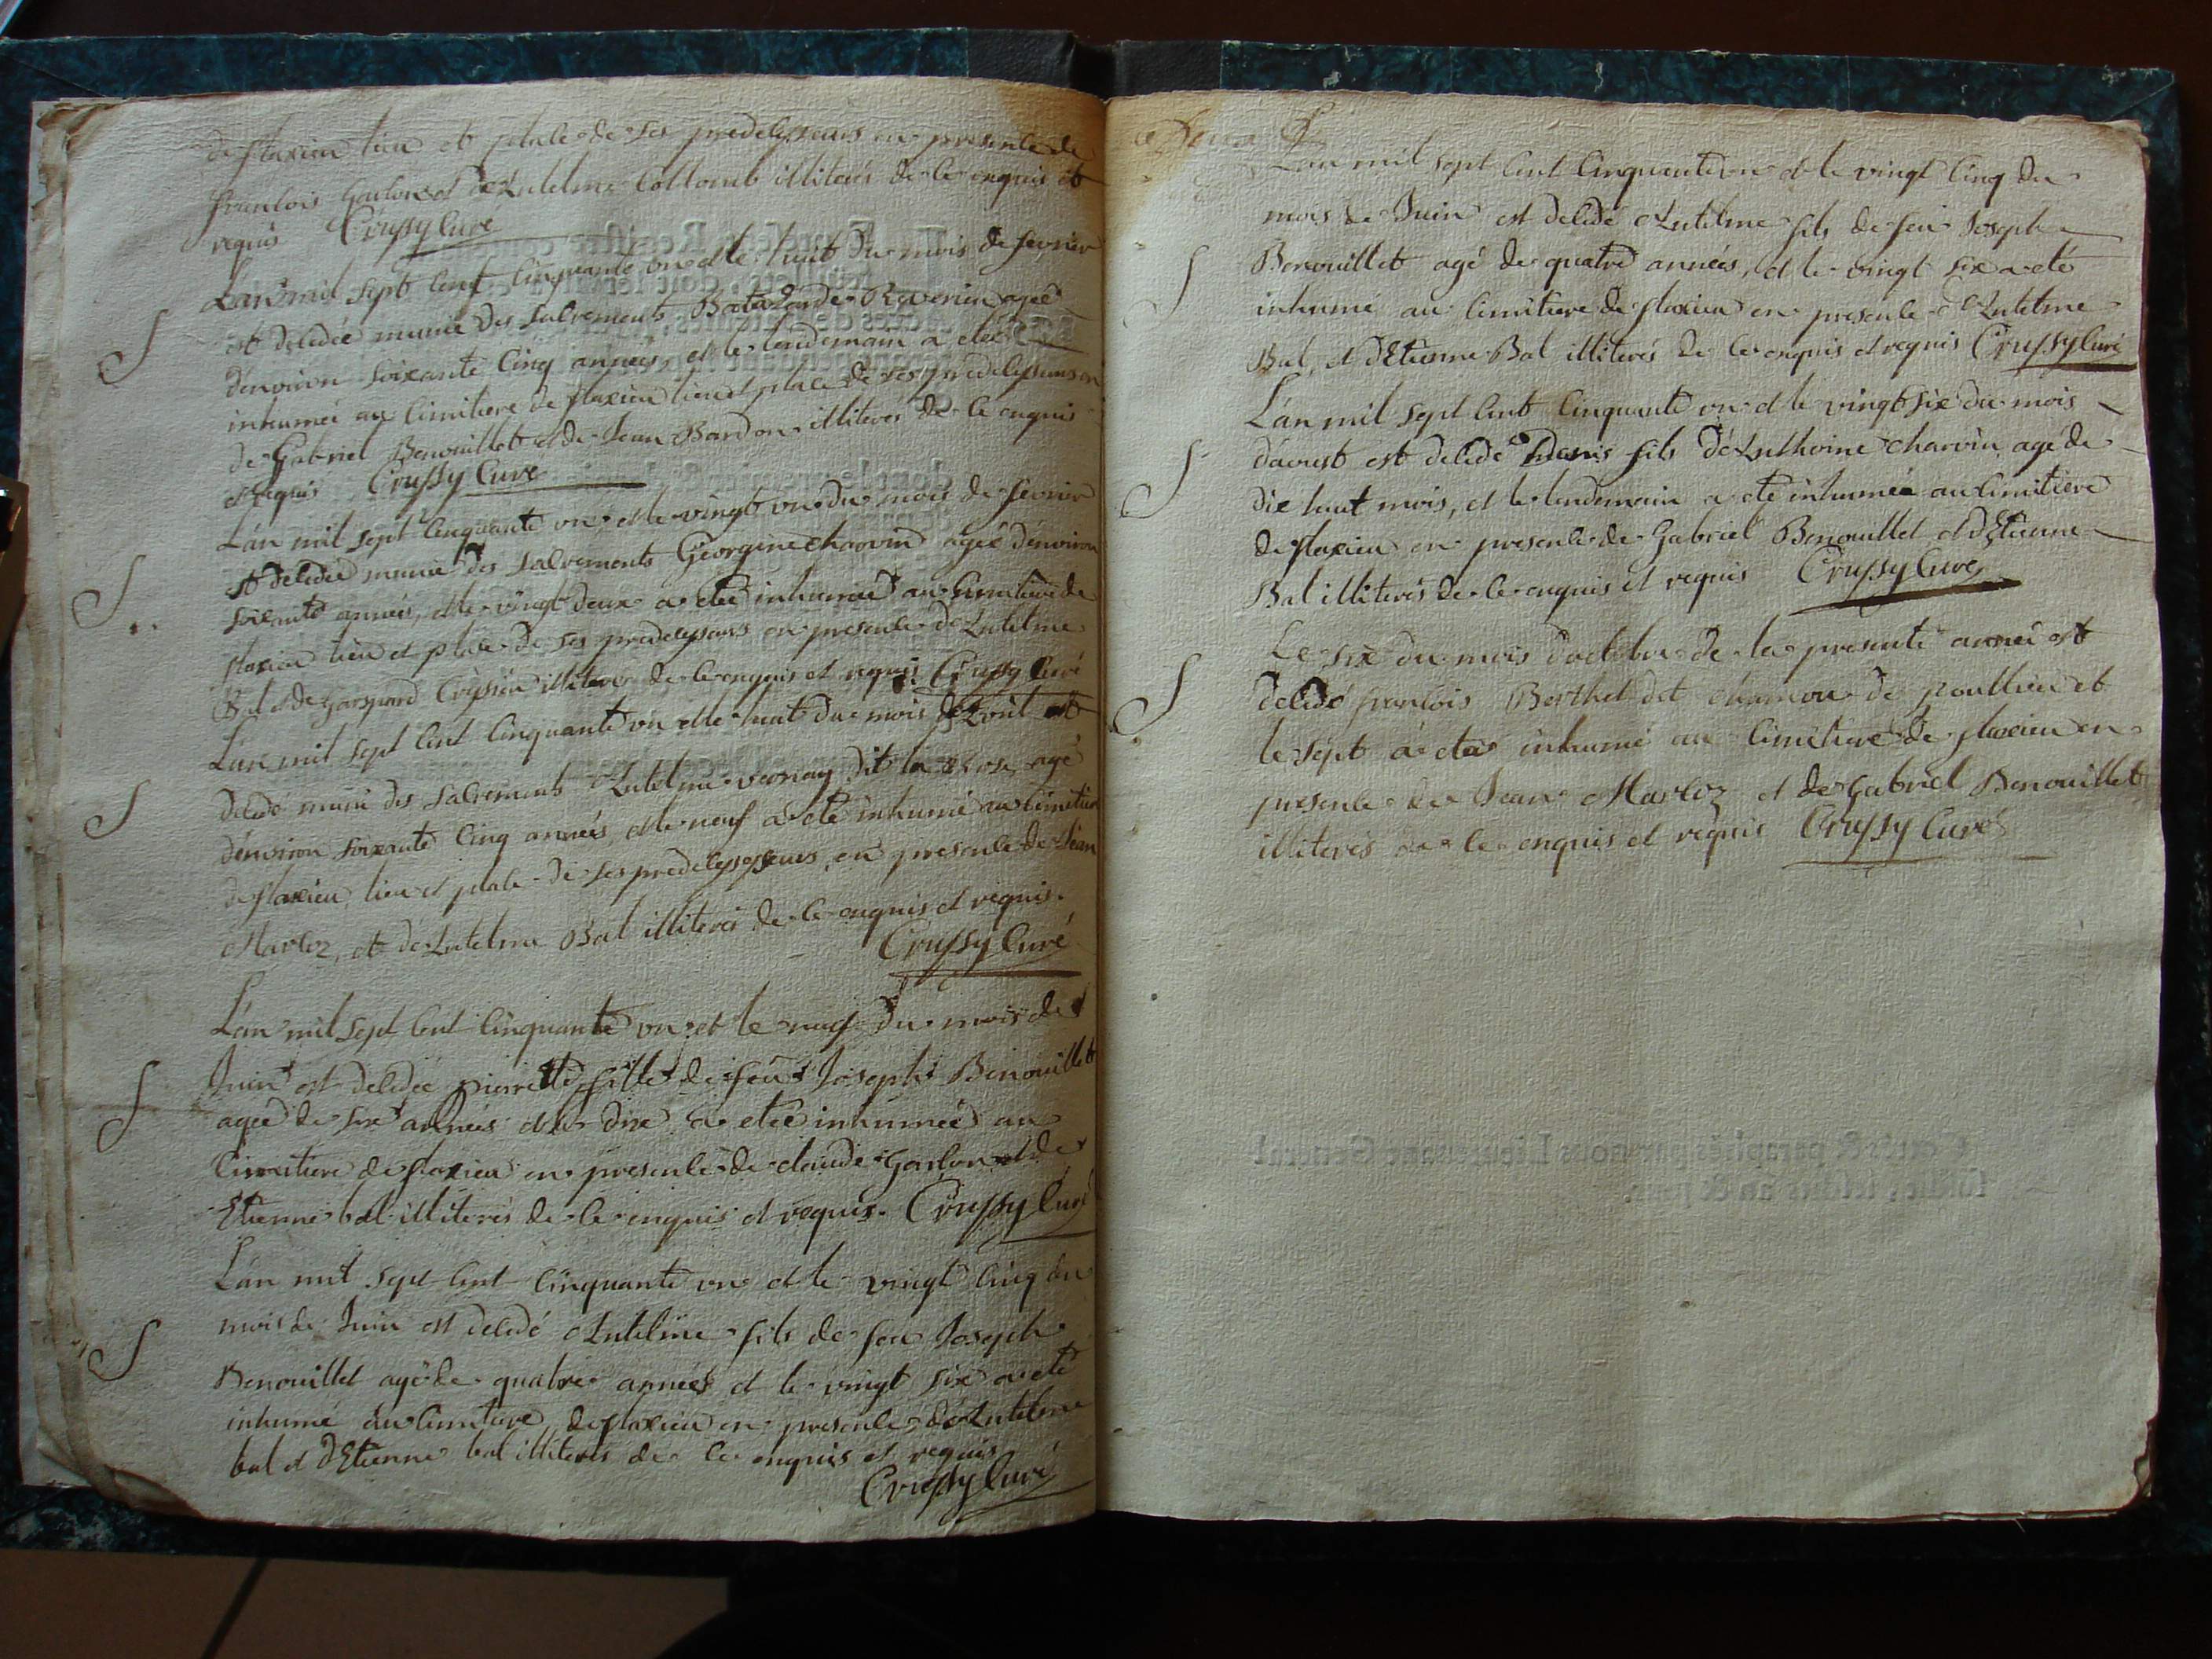 de flaxieu lieu et place de ses predecesseurs en presence de
francois Garlon et d'Antelme Collomb illiterés de ce enquis et
requis Crussy Curé
L'an mil sept cent cinquante un et le huit du mois de fevrier
est decedée munie des sacrements agée
d'environ soixante cinq années, et le lendemain a eté
inhumée au cimitiere de flaxieu lieu et place de ses predecesseurs en
de Gabriel Benouillet et de Jean Bardon illiterés de ce enquis
et requis Crussy Curé
L'an mil sept cinquante un et le vingt un du mois de fevrier
est decedée munie des sacrements Georgine charvin agée d'environ
soixante années, et le vingt deux a eté inhumée au cimitiere de
flaxieu lieu et place de ses predecesseurs en presence d'Antelme
Bal et de Gaspard illiterés de ce enquis et requis Crussy Curé
L'an mil sept cent cinquante un et le huit du mois d'Avril est
decedé muni des sacrements Antelme vernay dit la Rose, agé
d'environ soixante cinq années, et le neuf a eté inhumé au cimitiere
de flaxieu lieu et place de ses predecesseurs, en presence de Jean
Marloz, et d'Antelme Bal illiterés de ce enquis et requis.
Crussy Curé
L'an mil sept cent cinquante un et le neuf du mois de
Juin est decedée pierrette fille de feu Joseph Benouillet
agée de six années et le dix a eté inhumée au
Cimitiere de flaxieu en presence de claude Garlon et de
Etienne bal illiterés de ce enquis et requis. Crussy Curé
L'an mil sept cent cinquante un et le vingt cinq du
mois de Juin est decedé Antelme fils de feu Joseph
Benouillet agé de quatre années et le vingt six a eté
inhumé au cimitiere de flaxieu en presence d'Antelme
bal et d'Etienne bal illiterés de ce enquis et requis
Crussy Curé
L'an mil sept cent cinquante un et le vingt cinq du
mois de Juin est decedé Antelme fils de feu Joseph
Benouillet agé de quatre années, et le vingt six a eté
inhumé au cimitiere de flaxieu en presence d'Antelme
Bal, et d'Etienne Bal illiterés de ce enquis et requis Crussy Curé
L'an mil sept cent cinquante un et le vingt six du mois
d'aoust est decedé Denis fils d'Anthoine charvin agé de
dix huit mois, et le lendemain a eté inhumé au cimitiere
de flaxieu en presence de Gabriel Benouillet et d'Etienne
Bal illiterés de ce enquis et requis Crussy Curé
Le six du mois d'octobre de la presente année est
decedé francois Berthet dit de poullieu et
le sept a eté inhumé au cimitiere de flaxieu en
presence de Jean Marloz et de Gabriel Benouillet
illiterés de ce enquis et requis Crussy Curé